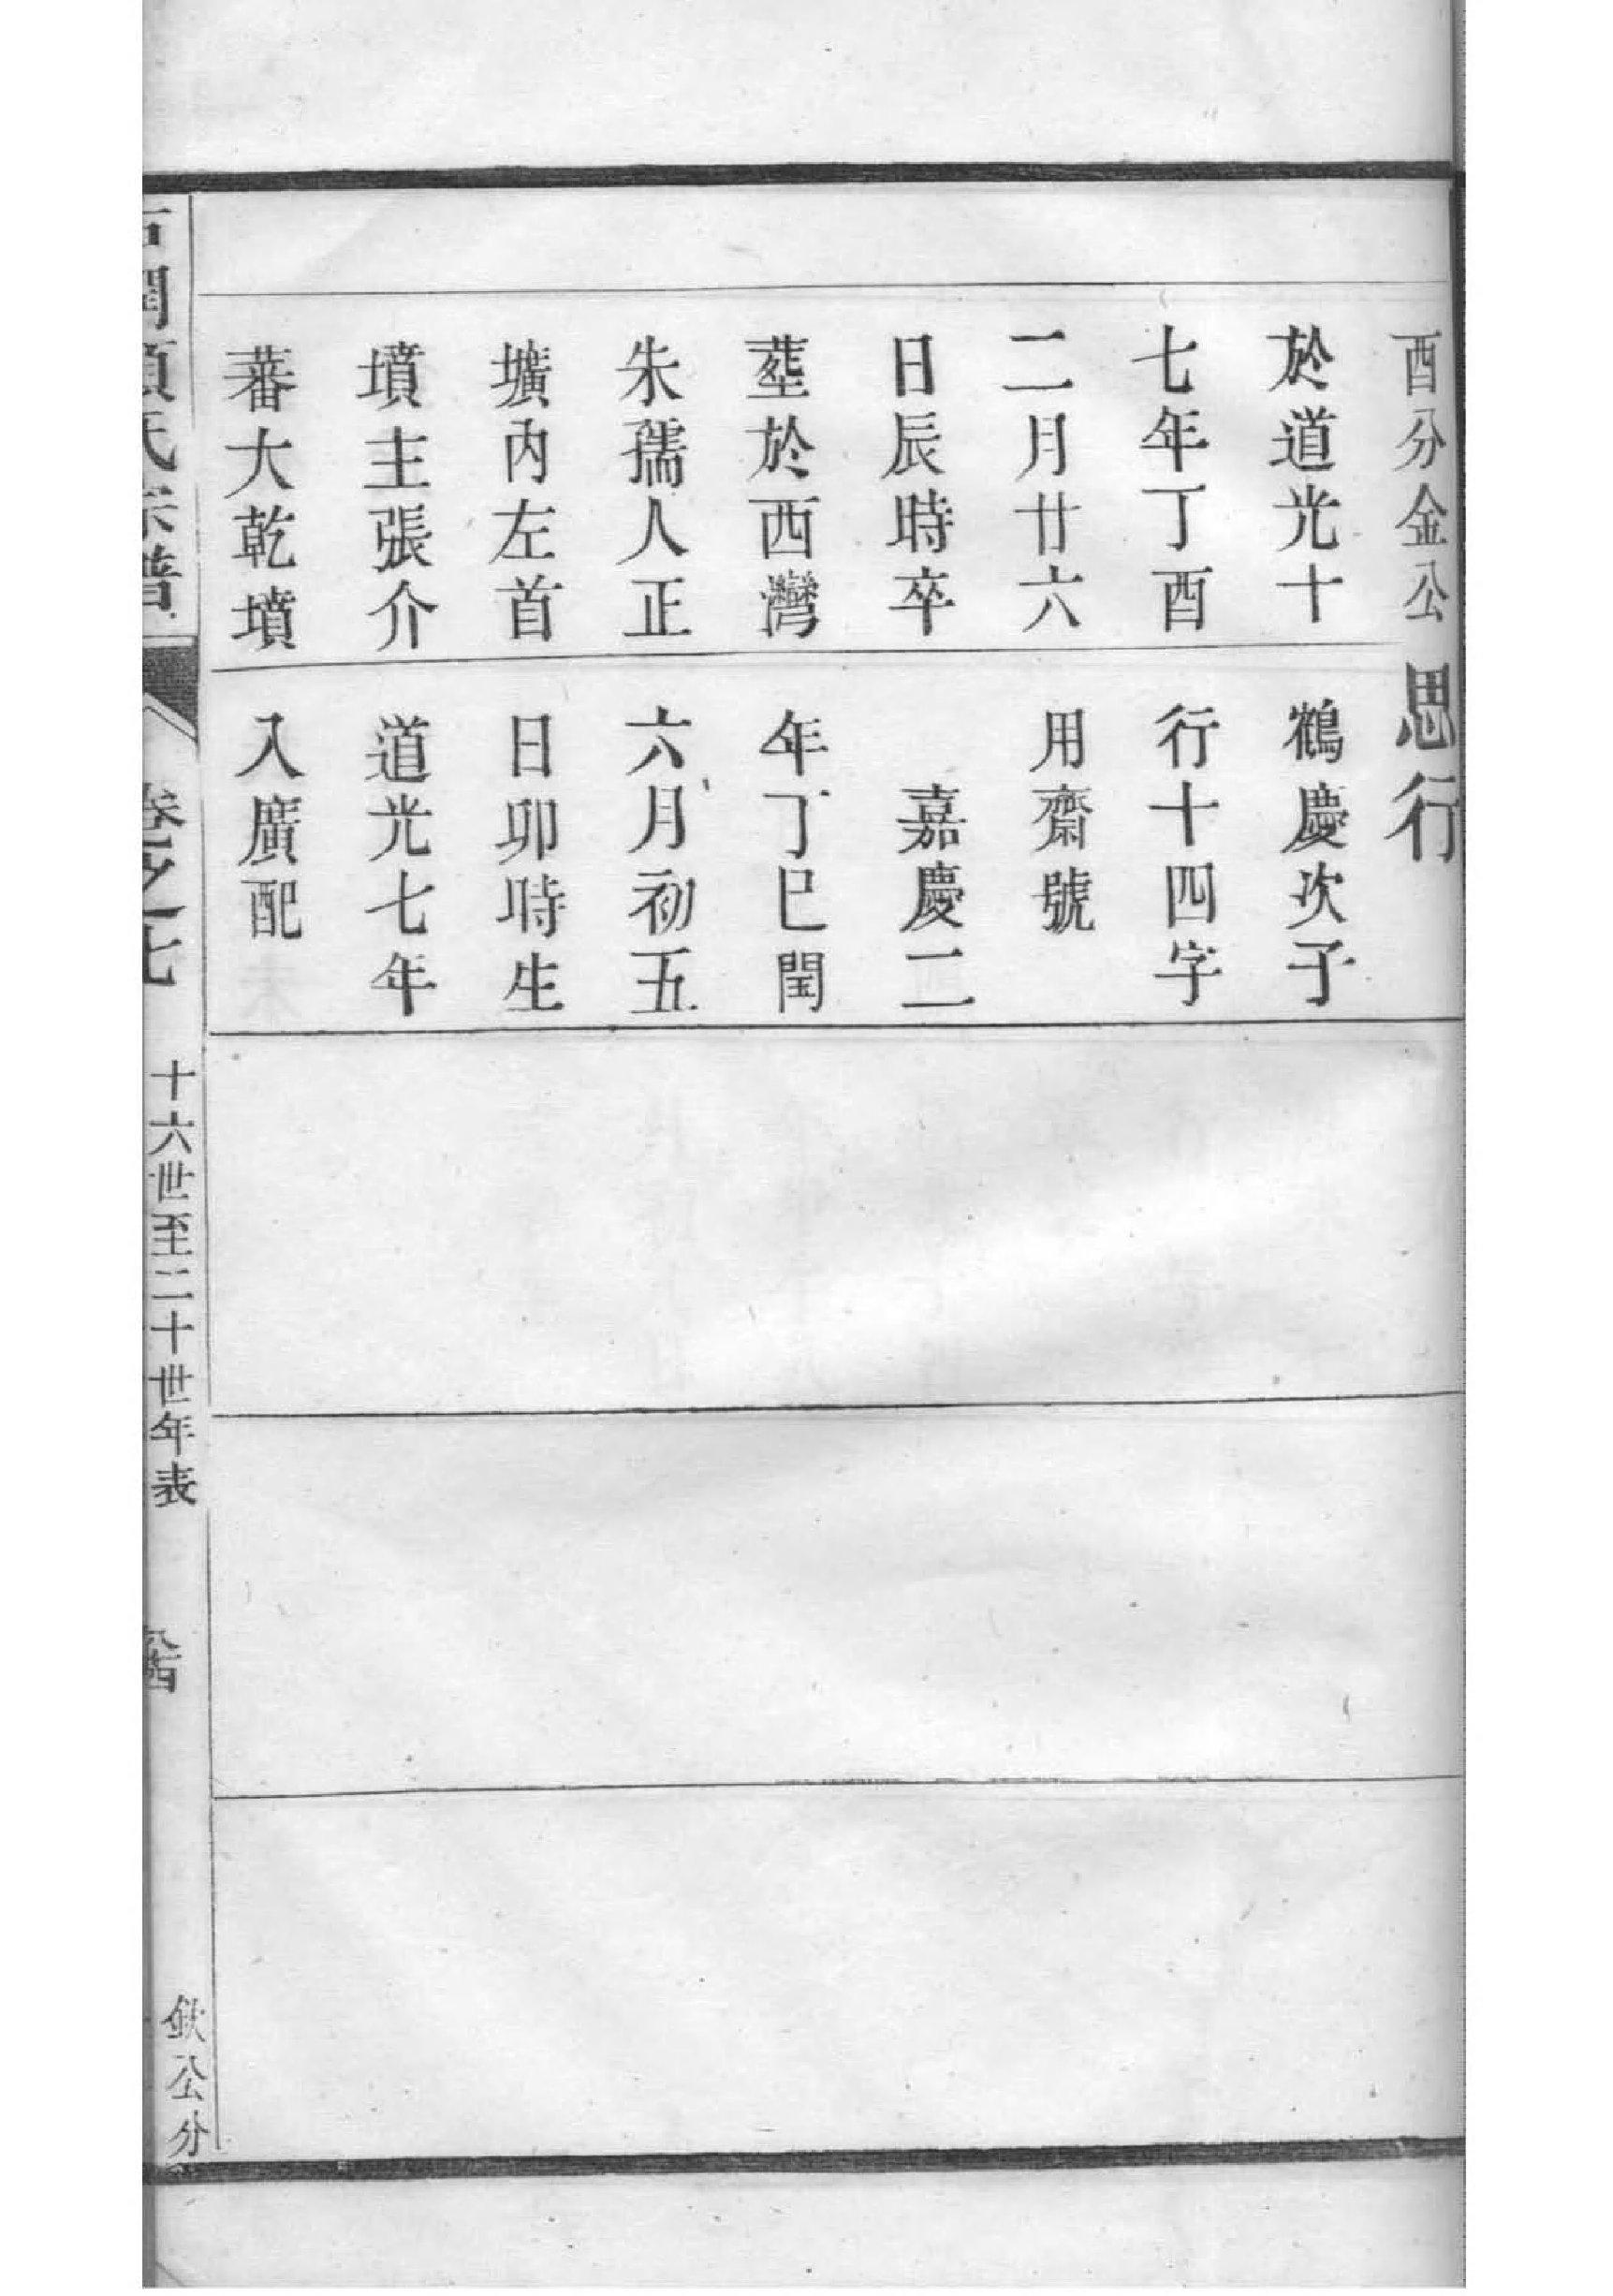 酉分金公
於道光十
七年丁酉
二月廿六
日辰時卒
塟於西灣
朱孺人正
壙內左首
墳主張介
蕃大乾墳
思行
鶴慶次子
行十四字
用齋號
嘉慶二
年丁巳閏
六月初五
日卯時生
道光七年
入廣配
項氏宗譜
卷之十七
十六世至二十世年表
欽公分